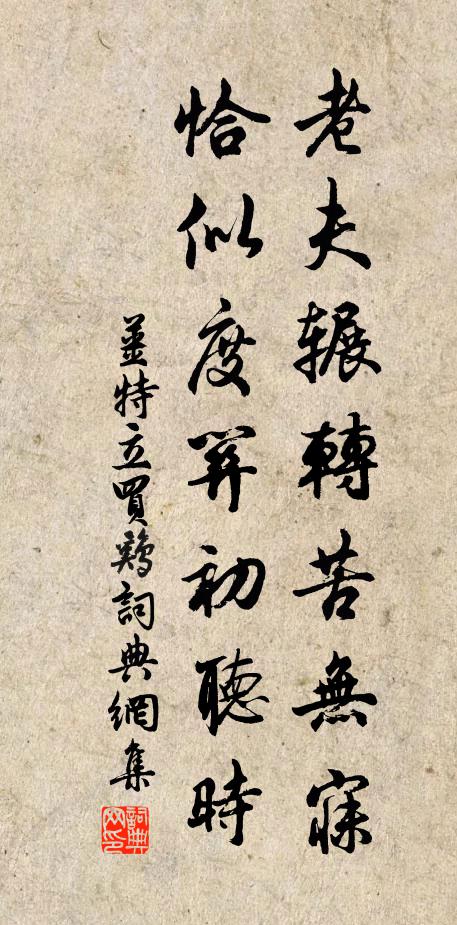 老夫辗轉苦無寐
恰似度関初聽時
薑特立買鷄詞典網集
詞典网印